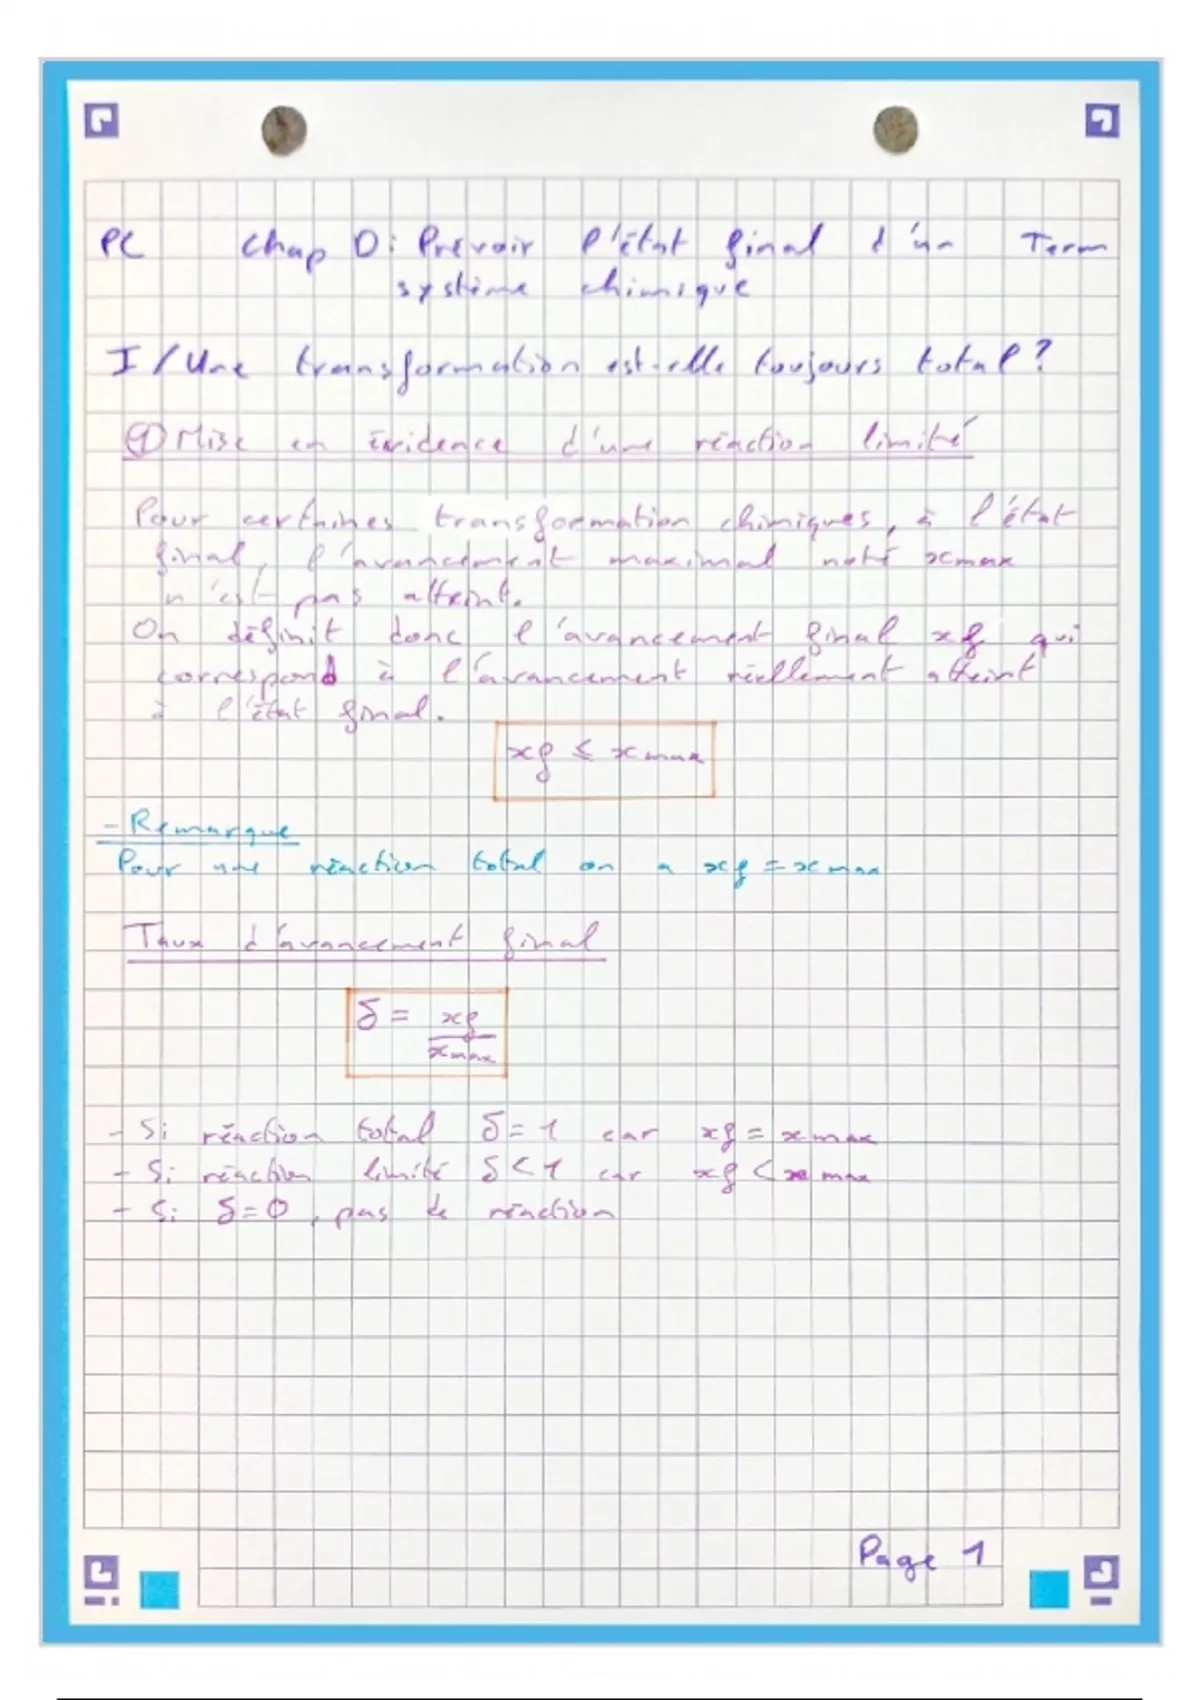 PC Chap 0: Prévoir l'état final d'un Term
système chimique
I/Une transformation est-elle toujours total?
① Mise en évidence d'une réaction limité
Pour certaines transformation chimiques, à l'état
final, l'avancement maximal noté xmax
n'est pas atteint.
On définit donc l'avancement final xf qui
correspond à l'avancement réellement atteint
à l'état final.
xf ≤ xmax
- Remarque
Pour une réaction total on a xf = xmax
Taux d'avancement final
δ = xf / xmax
- Si réaction total δ = 1 car xf = xmax
- Si réaction limité δ < 1 car xf < xmax
- Si δ = 0, pas de réaction
Page 1